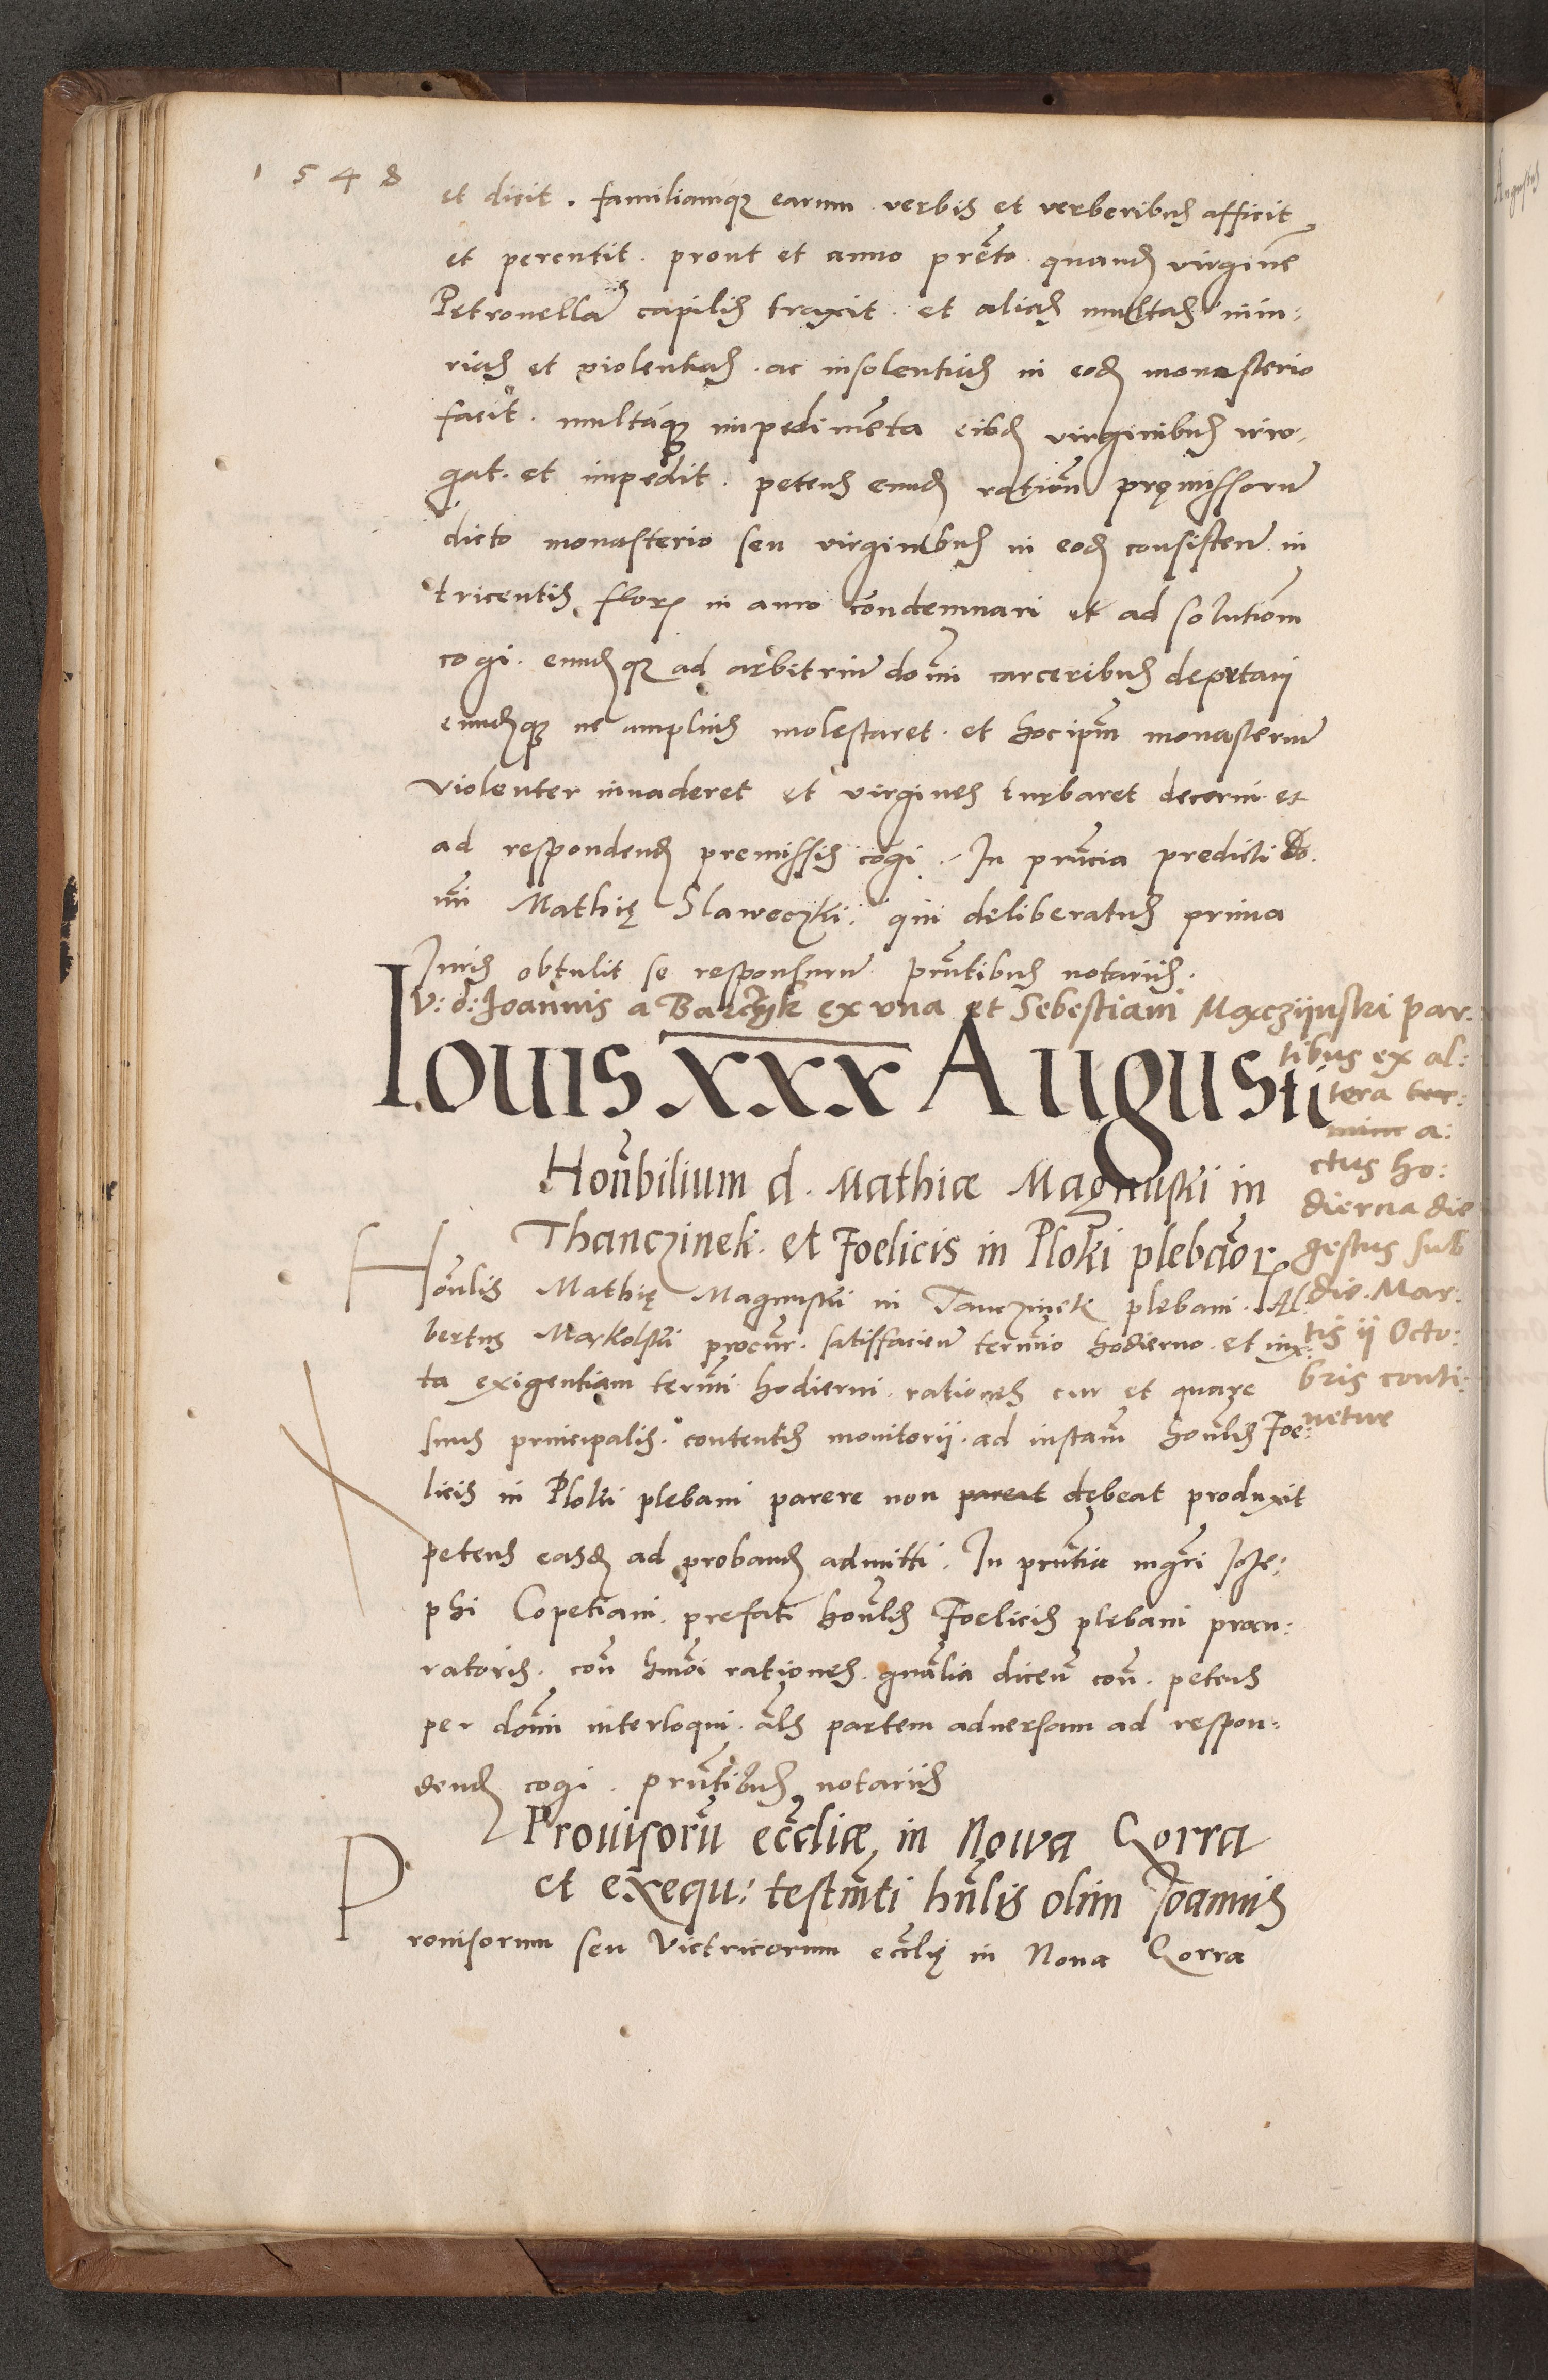 1548
et dicit. familiamque earum verbis et verberibus afficit
et percutit. prout et anno prñto. quandam virginẽ
Petronellã capilis traxit. et alias multas iniu:
rias et violentias. ac insolentias in eodem monasterio
facit. multaque impedimẽta eisdem virginibus irro:
gat. et impedit. petens eundem rationẽ pręmissorũ
dicto monasterio seu virginibus in eodem consisteñ. in
tricentis flor. in auro condemnari et ad solutiom
cogi. eundemque ad arbitriũ domĩ carceribus deputari
eundemque ne amplius molestaret. et hoc ipm̃ monasteriũ
violenter invaderet et virgines turbaret decerni et
ad respondendum premissis cogi. In prñcia predicti do.
mi Mathię Slaweczki. qui deliberatus prima
Juris obtulit se responsurũ. prñtibus notariis.
V: d: Joannis a Barczyk ex una et Sebestiani Marczijnski par.
tibus ex al:
tera ter:
mini a:
ctus ho:
dierna die
gestus sub
die. Mar:
tis ij Octo:
bris conti:
netur
Iouis xxx Augusti
Honñbilium d. Mathiæ Magnuski in
Thanczinek. et Foelicis in Ploki plebanor
Honñlis Mathię Magnuski in Tanczinek plebani. Al:
bertus Markolski procur. satisfacieñ termino hodierno. et iux:
ta exigentiam termini hodierni. rationes cur et quare
suus principalis. contentis monitorii. ad instam̃ honñlis Foe:
licis in Ploki plebani parere non pareat debeat produxit
petens easdem ad probandum admitti. In prñtia mgr̃i Jose:
phi Copetiani. prefati honñlis Foelicis plebani procu:
ratoris. coñ hmõi rationes. gnãlia diceñ coñ. petens
per domĩ interloqui. als partem adversam ad respon:
dendum cogi. prñtibus notariis
Provisorũ eccĩliæ in Nowa Gorra
et exequ: testmti hñlis olim Joannis
Provisorum seu Victricorum ecclię in Nova Gorra
Augustus